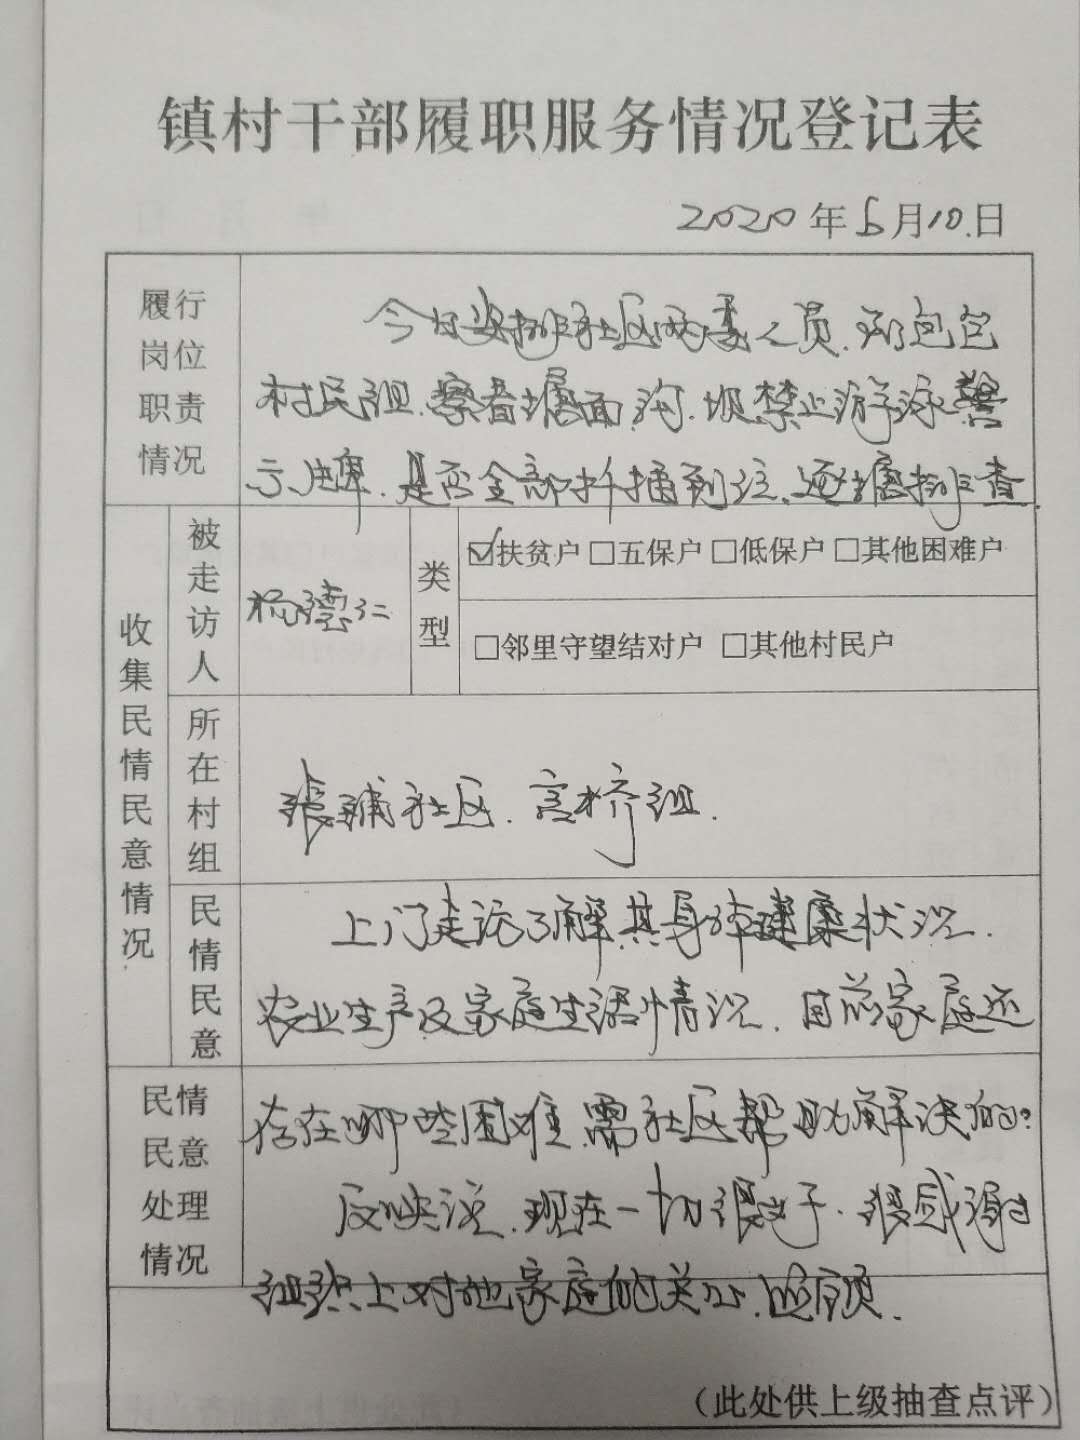 镇村干部履职服务情况登记表
2020年6月10日
履行岗位职责情况
今日安排社区两委人员.到包
村民组.察看塘面.沟.坝.禁止游泳警
示牌.是否全部到位.逐塘排查
收集民情民意情况
被走访人
杨德仁
类型
☑扶贫户 □五保户 □低保户 □其他困难户
□邻里守望结对户 □其他村民户
所在村组
张铺社区.高桥组.
民情民意
上门走访了解其身体健康状况.
农业生产及家庭生活情况.目前家庭还
民情民意处理情况
存在哪些困难.需社区帮助解决的?
反映说.现在一切很好.很感谢
组织上对他家庭的关心.照顾.
（此处供上级抽查点评）